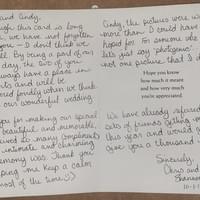 and Cindy,
this card is long
we have not forgotten
you — I don't think we
will. By being a part of our
day, the two of you
always have a place in
and will be
fondly when we think
our wonderful wedding.
you for making our special
beautiful and memorable.
so many compliments
intimate and charming
ceremony was. Thank you
helping me keep a calm
most of the time. :)
Cindy, the pictures were
more than I could have
hoped for. For someone who
is just say "photogenic"
not one picture that I
Hope you know
how much it meant
and how very much
you're appreciated.
We have already referred
sets of friends getting
this year and would
give you a thousand
Sincerely,
Chris and
Shannon
10-1-